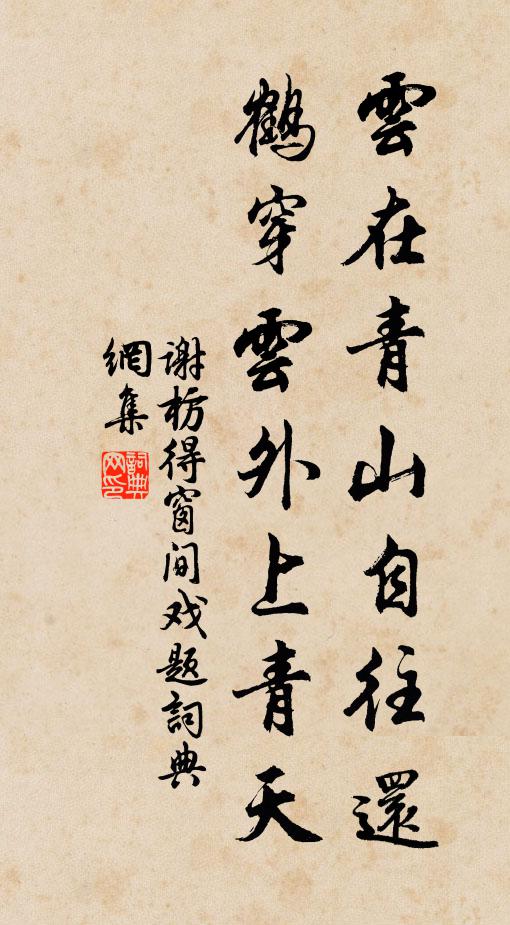 雲在青山自往還
鶴穿雲外上青天
谢枋得窗间戏题詞典
網集
詞典
网印